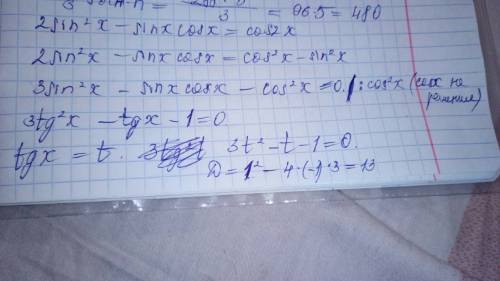 3 = 96·5 = 480
2sin²x - sinx cosx = cos2x
2sin²x - sinx cosx = cos²x - sin²x
3sin²x - sinx cosx - cos²x = 0. | : cos²x (cosx не
решение)
3tg²x - tgx - 1 = 0
tgx = t. 3t² - t - 1 = 0.
D = 1² - 4·(-1)·3 = 13